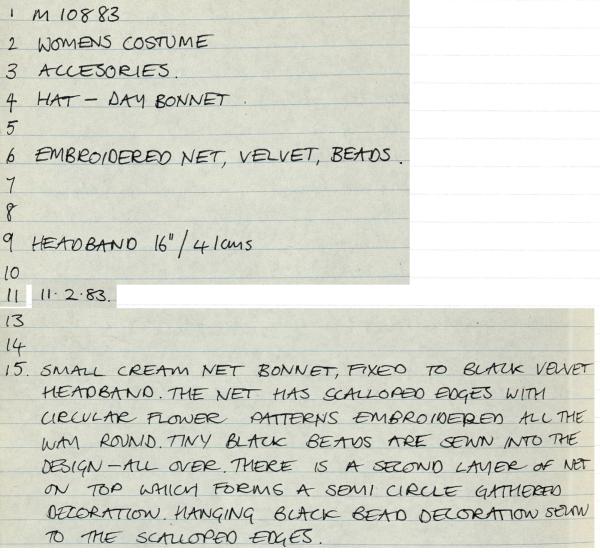 1 M 10883
2 WOMENS COSTUME
3 ACCESORIES.
4 HAT - DAY BONNET.
5
6 EMBROIDERED NET, VELVET, BEADS.
7
8
9 HEADBAND 16"/41cms
10
11 11.2.83.
13
14
15. SMALL CREAM NET BONNET, FIXED TO BLACK VELVET
HEADBAND. THE NET HAS SCALLOPED EDGES WITH
CIRCULAR FLOWER PATTERNS EMBROIDERED ALL THE
WAY ROUND. TINY BLACK BEADS ARE SEWN INTO THE
DESIGN - ALL OVER. THERE IS A SECOND LAYER OF NET
ON TOP WHICH FORMS A SEMI CIRCLE GATHERED
DECORATION. HANGING BLACK BEAD DECORATION SEWN
TO THE SCALLOPED EDGES.